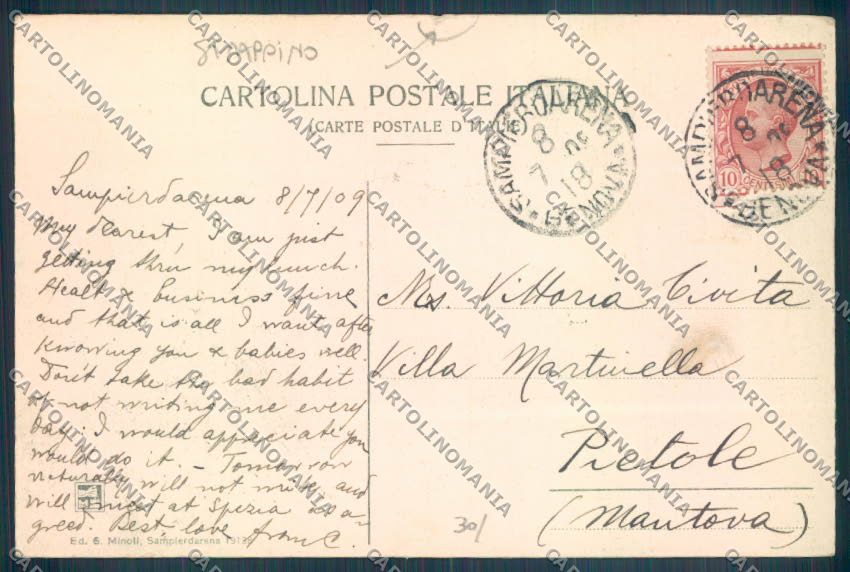 STRAPPINO
CARTOLINA POSTALE ITALIANA
(CARTE POSTALE D'ITALIE)
SAMPIERDARENA
8
7 09
18
GENOVA
SAMPIERDARENA
8
7
18
GENOVA
10 CENTESIMI
Sampierdarena 8/7/09
My dearest, I am just
getting thru my lunch.
Healt & business fine
and that is all I want after
knowing you & babies well.
Don't take the bad habit
of not writing me every
day. I would appreciate you
would do it. – Tomorrow
naturally will not write and
will meet at Spezia as a-
greed. Best love
Mrs. Vittoria Civita
Villa Martinella
Pietole
(Mantova)
30/
Ed. G. Minoli, Sampierdarena
CARTOLINOMANIA